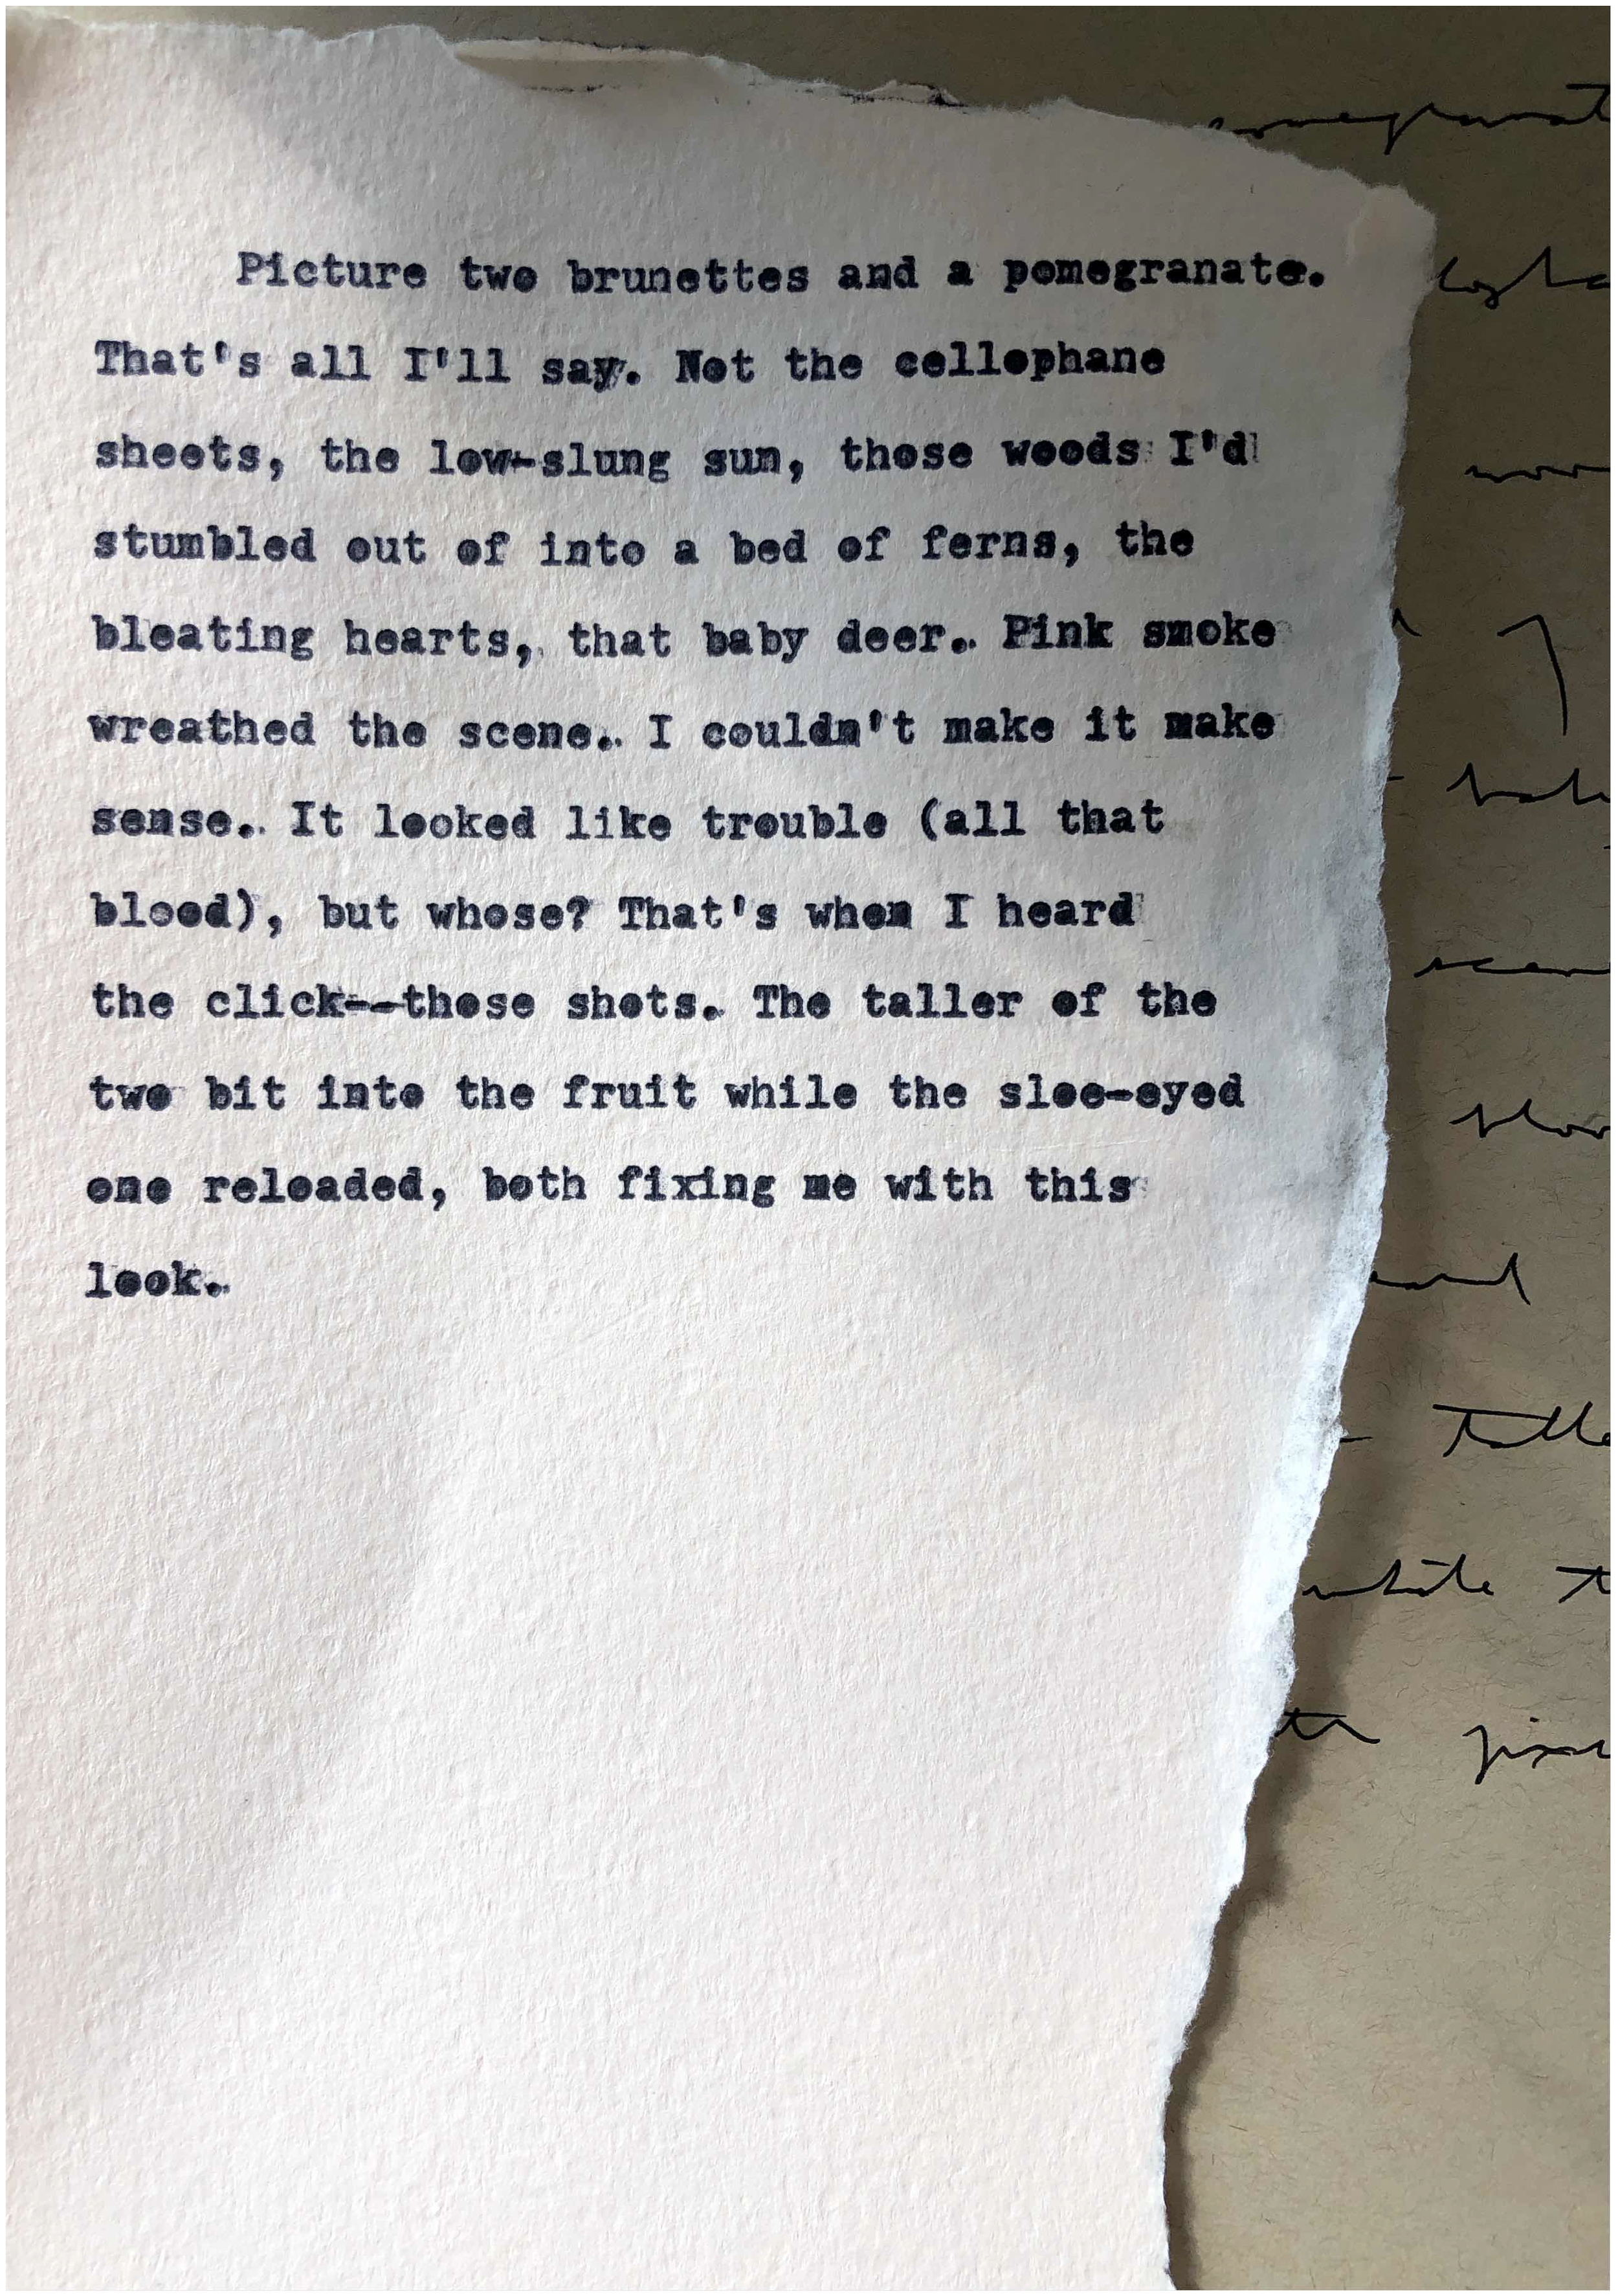 Picture two brunettes and a pomegranate.
That's all I'll say. Not the cellophane
sheets, the low-slung sun, those woods I'd
stumbled out of into a bed of ferns, the
bleating hearts, that baby deer. Pink smoke
wreathed the scene. I couldn't make it make
sense. It looked like trouble (all that
blood), but whose? That's when I heard
the click--those shots. The taller of the
two bit into the fruit while the sloe-eyed
one reloaded, both fixing me with this
look.
omegranat
while t